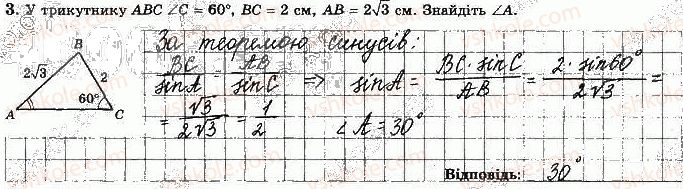 3. У трикутнику ABC ∠C = 60°, BC = 2 см, AB = 2√3 см. Знайдіть ∠A.
За теоремою синусів:
B
2√3 2
60°
A C
BC/sinA = AB/sinC ⇒ sinA = BC·sinC/AB = 2·sin60°/2√3 =
= √3/2√3 = 1/2 ∠A = 30°
Відповідь: 30°